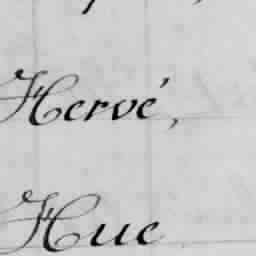 Hervé,
Hue